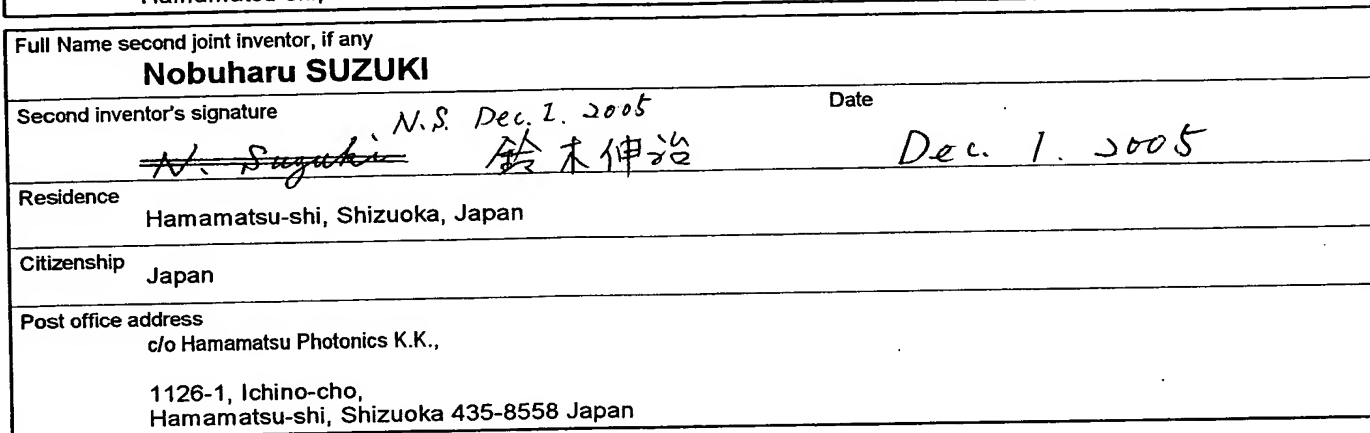 Full Name second joint inventor, if any
Nobuharu SUZUKI
Second inventor's signature
Date
N.S. Dec. 1. 2005
N. Suzuki 鈴木伸治
Dec. 1. 2005
Residence
Hamamatsu-shi, Shizuoka, Japan
Citizenship
Japan
Post office address
c/o Hamamatsu Photonics K.K.,
1126-1, Ichino-cho,
Hamamatsu-shi, Shizuoka 435-8558 Japan